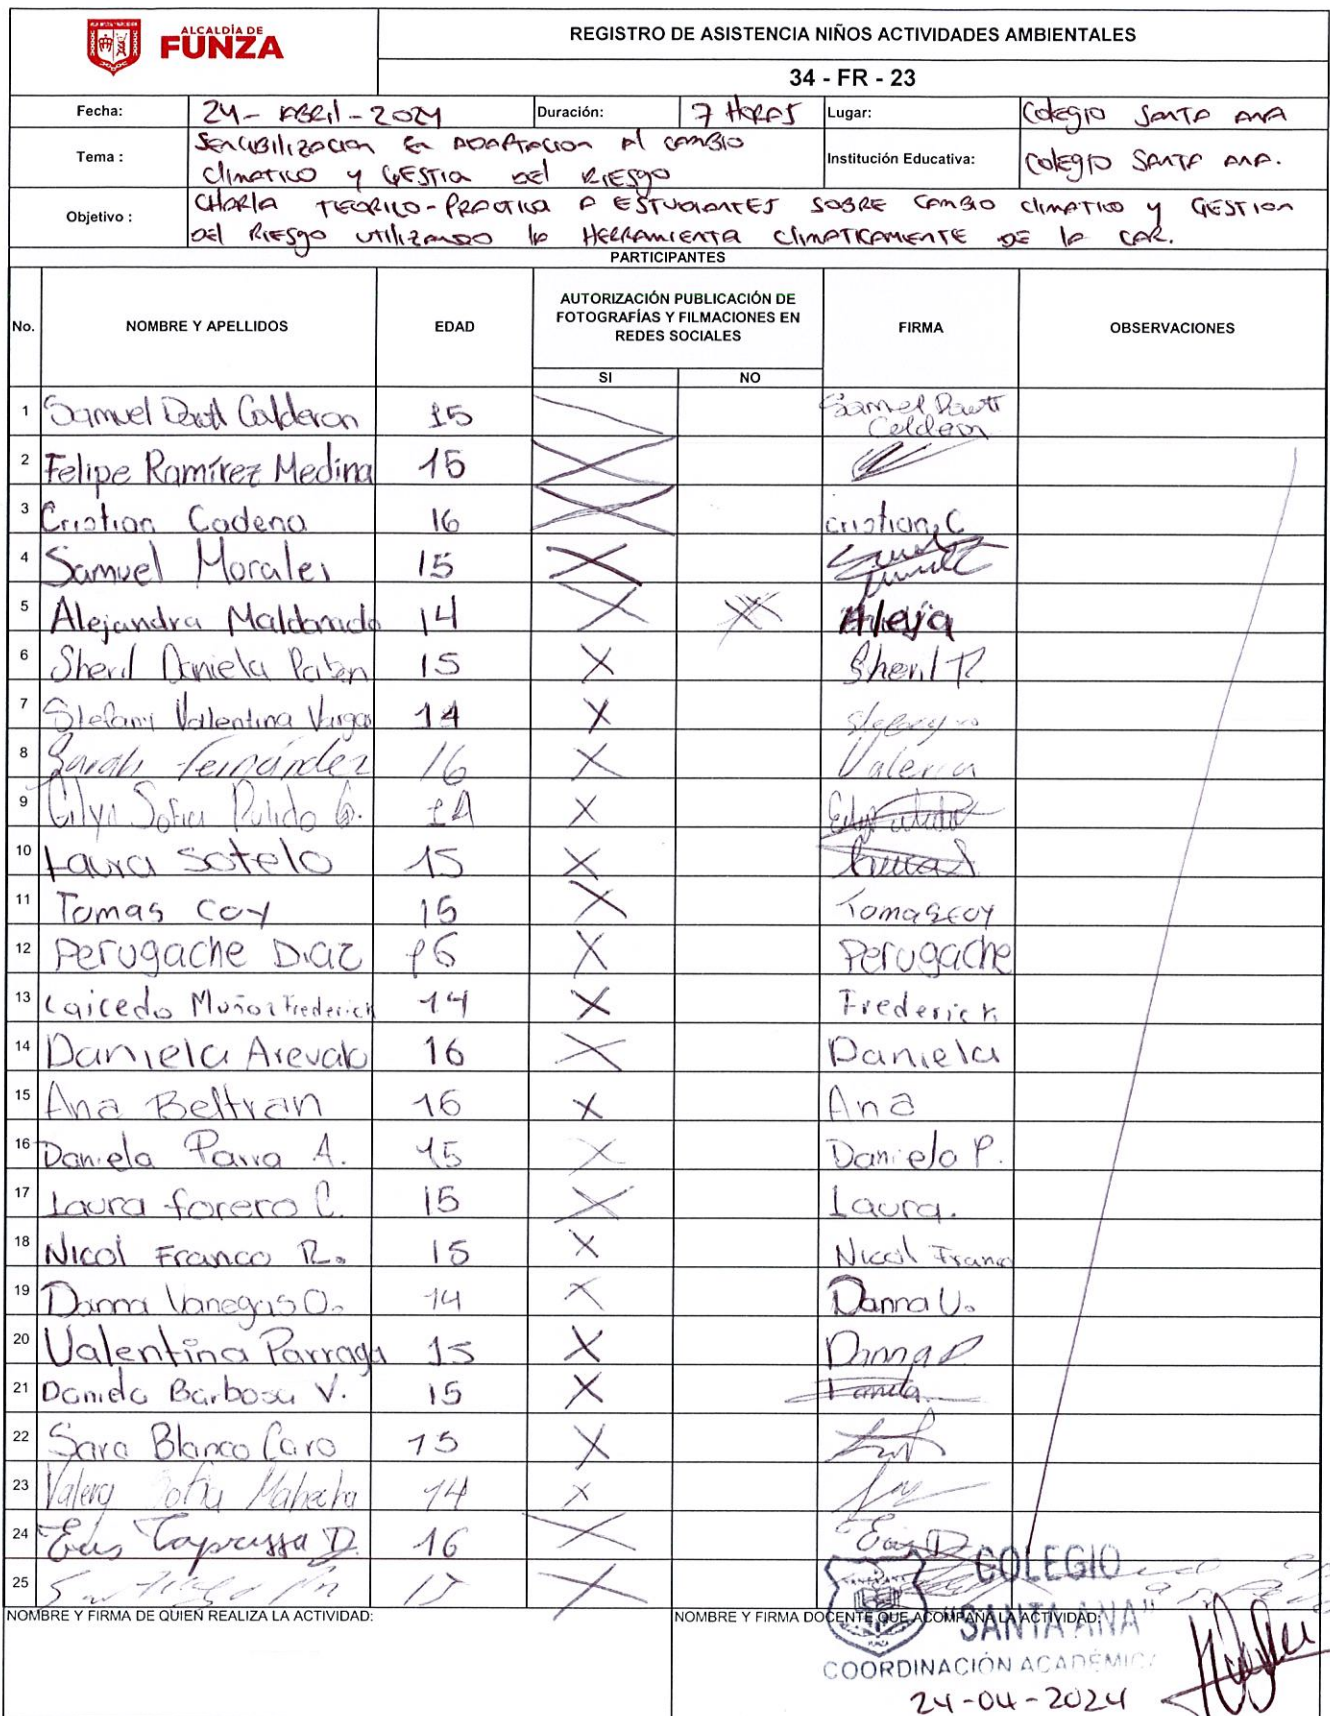 ALCALDÍA DE
FUNZA
REGISTRO DE ASISTENCIA NIÑOS ACTIVIDADES AMBIENTALES
34 - FR - 23
Fecha: 24 - ABRIL - 2024 Duración: 7 HORAS Lugar: Colegio SANTA ANA
Tema : SENSIBILIZACION EN ADAPTACION Al CAMBIO
CLIMATICO y GESTION DEL RIESGO Institución Educativa: Colegio SANTA ANA.
Objetivo : CHARLA TEORICO-PRACTICA A ESTUDIANTES SOBRE CAMBIO CLIMATICO y GESTION
DEL RIESGO UTILIZANDO la HERRAMIENTA CLIMATICAMENTE DE la CAR.
PARTICIPANTES
No. NOMBRE Y APELLIDOS EDAD AUTORIZACIÓN PUBLICACIÓN DE FOTOGRAFÍAS Y FILMACIONES EN REDES SOCIALES FIRMA OBSERVACIONES
SI NO
1 Samuel Calderon 15 X
2 Felipe Ramírez Medina 15 X
3 Cristian Cadena 16 X cristian C
4 Samuel Morales 15 X
5 Alejandra Maldonado 14 X Aleja
6 Sheril Daniela 15 X Sheril P.
7 Stefani Valentina Vargas 14 X
8 Sarah Fernández 16 X Valeria
9 Sofia Pulido G. 14 X
10 Laura Sotelo 15 X
11 Tomas Coy 15 X Tomas coy
12 Perugache Diaz X Perugache
13 Caicedo Muñoz Frederick 14 X Frederick
14 Daniela Arevalo 16 X Daniela
15 Ana Beltran 16 X Ana
16 Daniela Parra A. 15 X Daniela P.
17 Laura forero C. 15 X Laura.
18 Nicol Franco R. 15 X Nicol Franc
19 Danna Vanegas O. 14 X Danna V.
20 Valentina Parraga 15 X Danna P
21 Daniela Barbosa V. 15 X
22 Sara Blanco Caro 15 X
23 Sofia Mahecha 14 X
24 16 X
25 X
NOMBRE Y FIRMA DE QUIEN REALIZA LA ACTIVIDAD: NOMBRE Y FIRMA DOCENTE QUE ACOMPAÑA LA ACTIVIDAD:
COLEGIO
"SANTA ANA"
COORDINACIÓN ACADÉMICA
24-04-2024